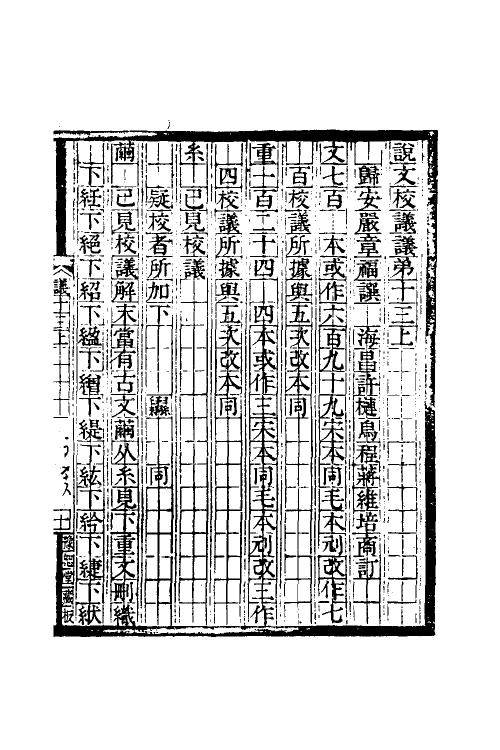 說文校議議弟十三上
歸安嚴章福譔 海昌許槤烏程蔣維培商訂
文七百 本或作六百九十九宋本同毛本剜改作七
百校議所據與五次改本同
重一百二十四 四本或作三宋本同毛本剜改三作
四校議所據與五次改本同
糸 已見校議
疑校者所加下 同
繭 已見校議解末當有古文繭从糸見下重文刪織
下紝下絕下紹下縕下繒下緹下紘下紟下緁下紱
議十三上